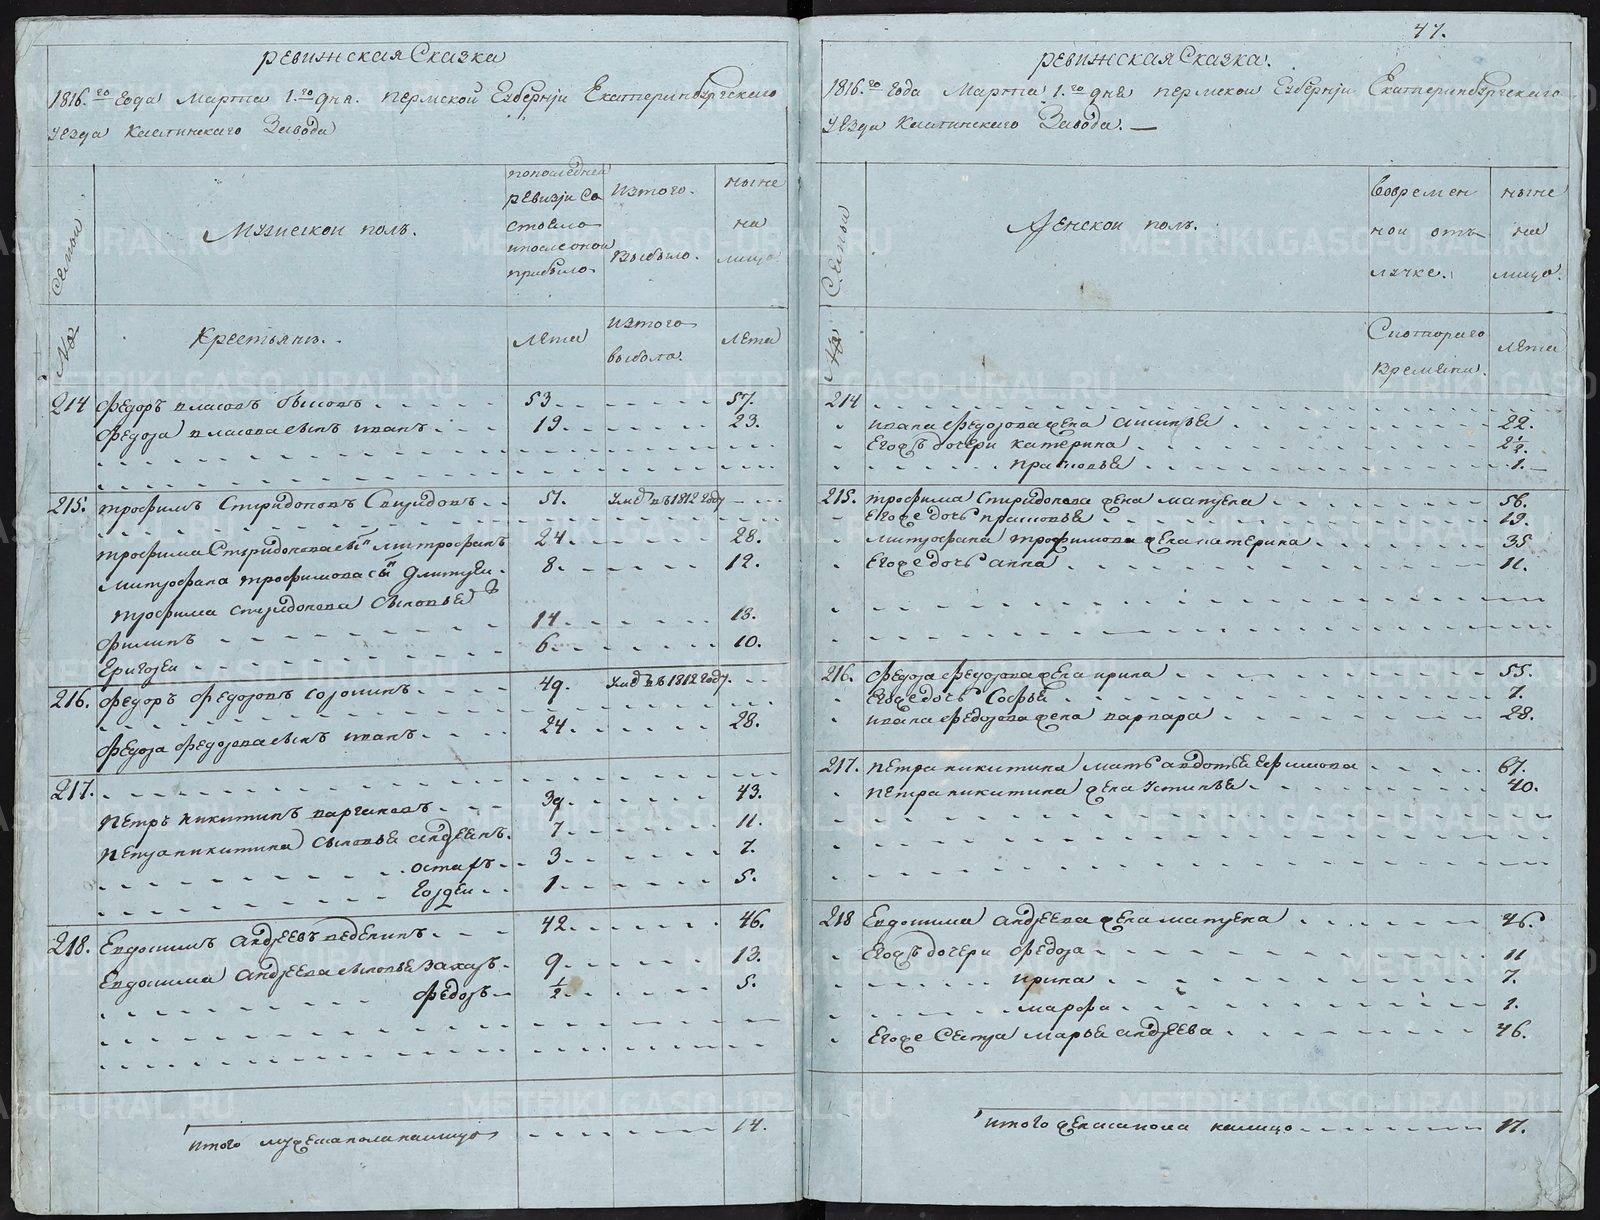 ревижская Сказка
1816.го года Марта 1.го дня. пермской губернји Екатеринбургскаго
уезда Каслинскаго Завода
Мужескои полъ.
попоследнеи
ревизји со
стояло
ипослеоной
прибыло
Изтого.
выбыло.
ныне
на
лицо
№ Семеи
Крестьянъ.
лета
изтого
выбыло.
лета
214 Федоръ власовъ 53 57.
Федора власова сынъ иванъ 19. 23.
215. трофимъ Спиридоновъ Свиридовъ 51. Умеръ въ 1812 году
трофима Спиридонова сынъ митрофанъ 24 28.
митрофана трофимова сынъ Дмитреи 8. 12.
трофима спиридонова сыновья
филипъ 14 18.
Григореи 6. 10.
216. Федоръ Федоровъ 49. Умеръ въ 1812 году.
Федора Федорова сынъ иванъ 24. 28.
217.
Петръ никитинъ 39. 43.
Петра никитина сыновья андреянъ. 7. 11.
остафъ 3 7.
гордеи 1. 5.
218. Евдокимъ андреевъ веденинъ 42. 46.
Евдокима андреева сыновья Захаръ 9. 13.
федоръ 1/2. 5.
итого мужеска пола налицо 14.
47.
ревижская Сказка.
1816.го года Марта 1.го дня пермской губернји Екатеринбургскаго
уезда Каслинскаго Завода.
Женской полъ.
вовремен
ной отъ
лучке.
ныне
на
лицо.
№ Семеи
Скотораго
времяни.
лета
214
ивана федорова жена аксинья 22.
Егожъ дочери катерина 2 1/2.
прасковья 1.
215. трофима Спиридонова жена матрена 56.
Егоже дочь прасковья 19.
митрофана трофимова жена катерина 35
Егоже дочь анна 11.
216. Федора Федорова жена ирина 55.
Егоже дочь Софья 7.
ивана федорова жена варвара 28.
217. петра никитина мать авдотья ефимова 67.
петра никитина жена устинья 40.
218 Евдокима андреева жена матрена 46.
Егожъ дочери федора 11
ирина 7.
марфа 1.
Егоже Сестра марья андреева 46.
итого женска пола налицо 17.
METRIKI.GASO-URAL.RU